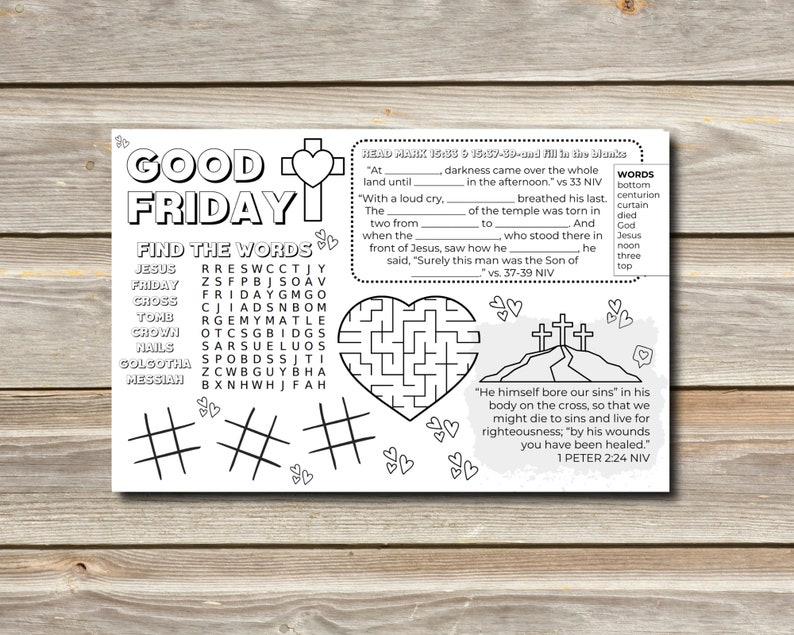 GOOD
FRIDAY
READ MARK 15:33 & 15:37-39-and fill in the blanks
"At ________, darkness came over the whole
land until ________ in the afternoon." vs 33 NIV
"With a loud cry, ________ breathed his last.
The ________ of the temple was torn in
two from ________ to ________. And
when the ________, who stood there in
front of Jesus, saw how he ________, he
said, "Surely this man was the Son of
________." vs. 37-39 NIV
WORDS
bottom
centurion
curtain
died
God
Jesus
noon
three
top
FIND THE WORDS
JESUS
FRIDAY
CROSS
TOMB
CROWN
NAILS
GOLGOTHA
MESSIAH
R R E S W C C T J Y
Z S F P B J S O A V
F R I D A Y G M G O
C J I A D S N B O M
R G E M Y M A T L E
O T C S G B I D G S
S A R S U E L U O S
S P O B D S S J T I
Z C W B G U Y B H A
B X N H W H J F A H
"He himself bore our sins" in his
body on the cross, so that we
might die to sins and live for
righteousness; "by his wounds
you have been healed."
1 PETER 2:24 NIV